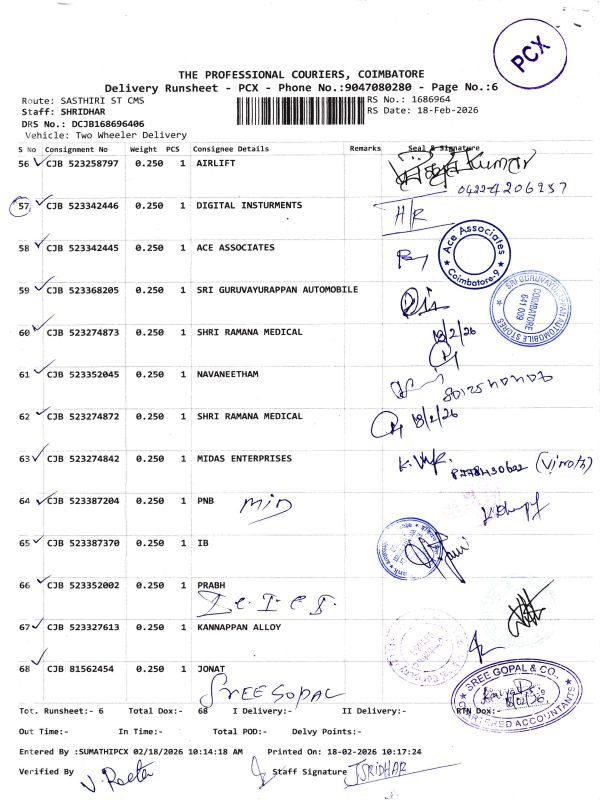 PCX
THE PROFESSIONAL COURIERS, COIMBATORE
Delivery Runsheet - PCX - Phone No.:9047080280 - Page No.:6
Route: SASTHIRI ST CMS
RS No.: 1686964
Staff: SHRIDHAR
RS Date: 18-Feb-2026
DRS No.: DCJB168696406
Vehicle: Two Wheeler Delivery
S No Consignment No Weight PCS Consignee Details Remarks Seal & Signature
56 CJB 523258797 0.250 1 AIRLIFT
Kumar
57 CJB 523342446 0.250 1 DIGITAL INSTURMENTS H/R
58 CJB 523342445 0.250 1 ACE ASSOCIATES
Ace Associates
Coimbatore-9
59 CJB 523368205 0.250 1 SRI GURUVAYURAPPAN AUTOMOBILE
COIMBATORE
641 009
60 CJB 523274873 0.250 1 SHRI RAMANA MEDICAL 18/2/26
61 CJB 523352045 0.250 1 NAVANEETHAM
62 CJB 523274872 0.250 1 SHRI RAMANA MEDICAL 18/2/26
63 CJB 523274842 0.250 1 MIDAS ENTERPRISES (Vinoth)
64 CJB 523387204 0.250 1 PNB min
65 CJB 523387370 0.250 1 IB
66 CJB 523352002 0.250 1 PRABH
67 CJB 523327613 0.250 1 KANNAPPAN ALLOY
68 CJB 81562454 1 JONAT
0.250
SREE GOPAL
SREE GOPAL & CO.,
CHARTERED ACCOUNTANTS
Tot. Runsheet:- 6 Total Dox:- 68 I Delivery:- II Delivery:- RTN Dox:-
Out Time:- In Time:- Total POD:- Delvy Points:-
Entered By :SUMATHIPCX 02/18/2026 10:14:18 AM Printed On: 18-02-2026 10:17:24
Verified By Staff Signature JSRIDHAR